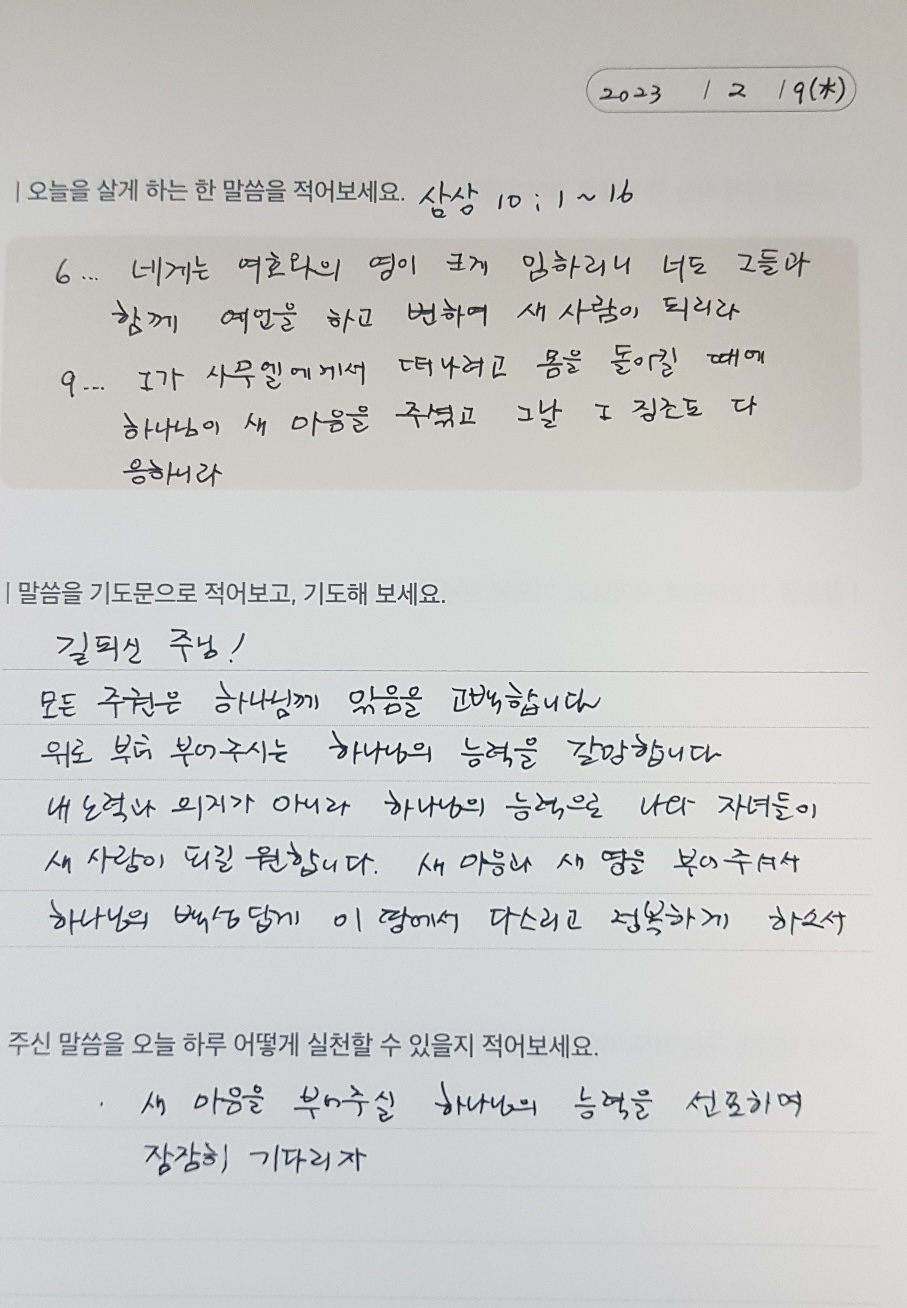 2023 / 2 / 9(木)
| 오늘을 살게 하는 한 말씀을 적어보세요. 삼상 10 ; 1 ~ 16
6... 네게는 여호와의 영이 크게 임하리니 너도 그들과
함께 예언을 하고 변하여 새 사람이 되리라
9... 그가 사무엘에게서 떠나려고 몸을 돌이킬 때에
하나님이 새 마음을 주셨고 그날 그 징조도 다
응하니라
| 말씀을 기도문으로 적어보고, 기도해 보세요.
길되신 주님!
모든 주권은 하나님께 있음을 고백합니다
위로 부터 부어주시는 하나님의 능력을 갈망합니다
내 노력과 의지가 아니라 하나님의 능력으로 나와 자녀들이
새 사람이 되길 원합니다. 새 마음과 새 영을 부어주셔서
하나님의 백성답게 이 땅에서 다스리고 정복하게 하소서
주신 말씀을 오늘 하루 어떻게 실천할 수 있을지 적어보세요.
· 새 마음을 부어주실 하나님의 능력을 선포하며
잠잠히 기다리자